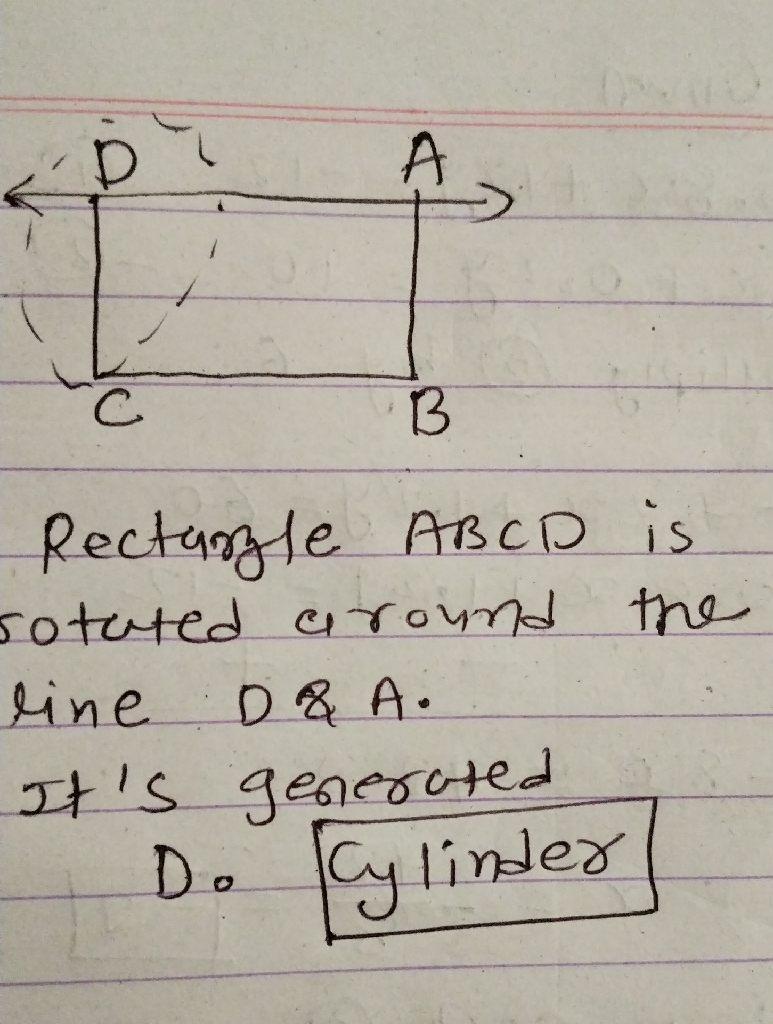 D A
C B
Rectangle ABCD is
rotated around the
line D & A.
It's generated
D. Cylinder